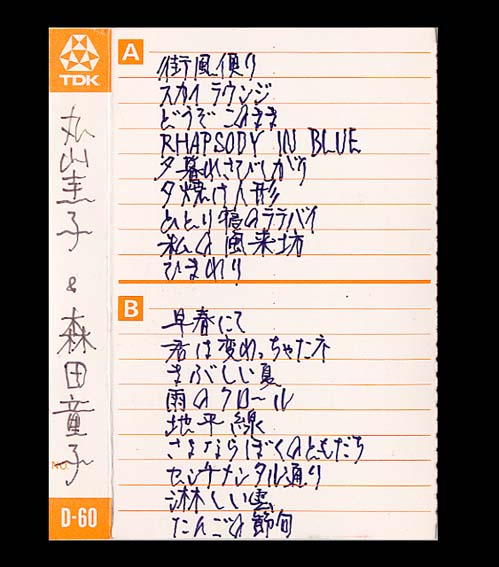 TDK
丸山圭子 & 森田童子
NO.
D-60
A
街風便り
スカイラウンジ
どうぞこのまま
RHAPSODY IN BLUE
夕暮れさびしがり
夕焼け人形
ひとり寝のララバイ
私の風来坊
ひまわり
B
早春にて
君は変わっちゃたネ
まぶしい夏
雨のクロール
地平線
さよならぼくのともだち
センチメンタル通り
淋しい雲
たんごの節句